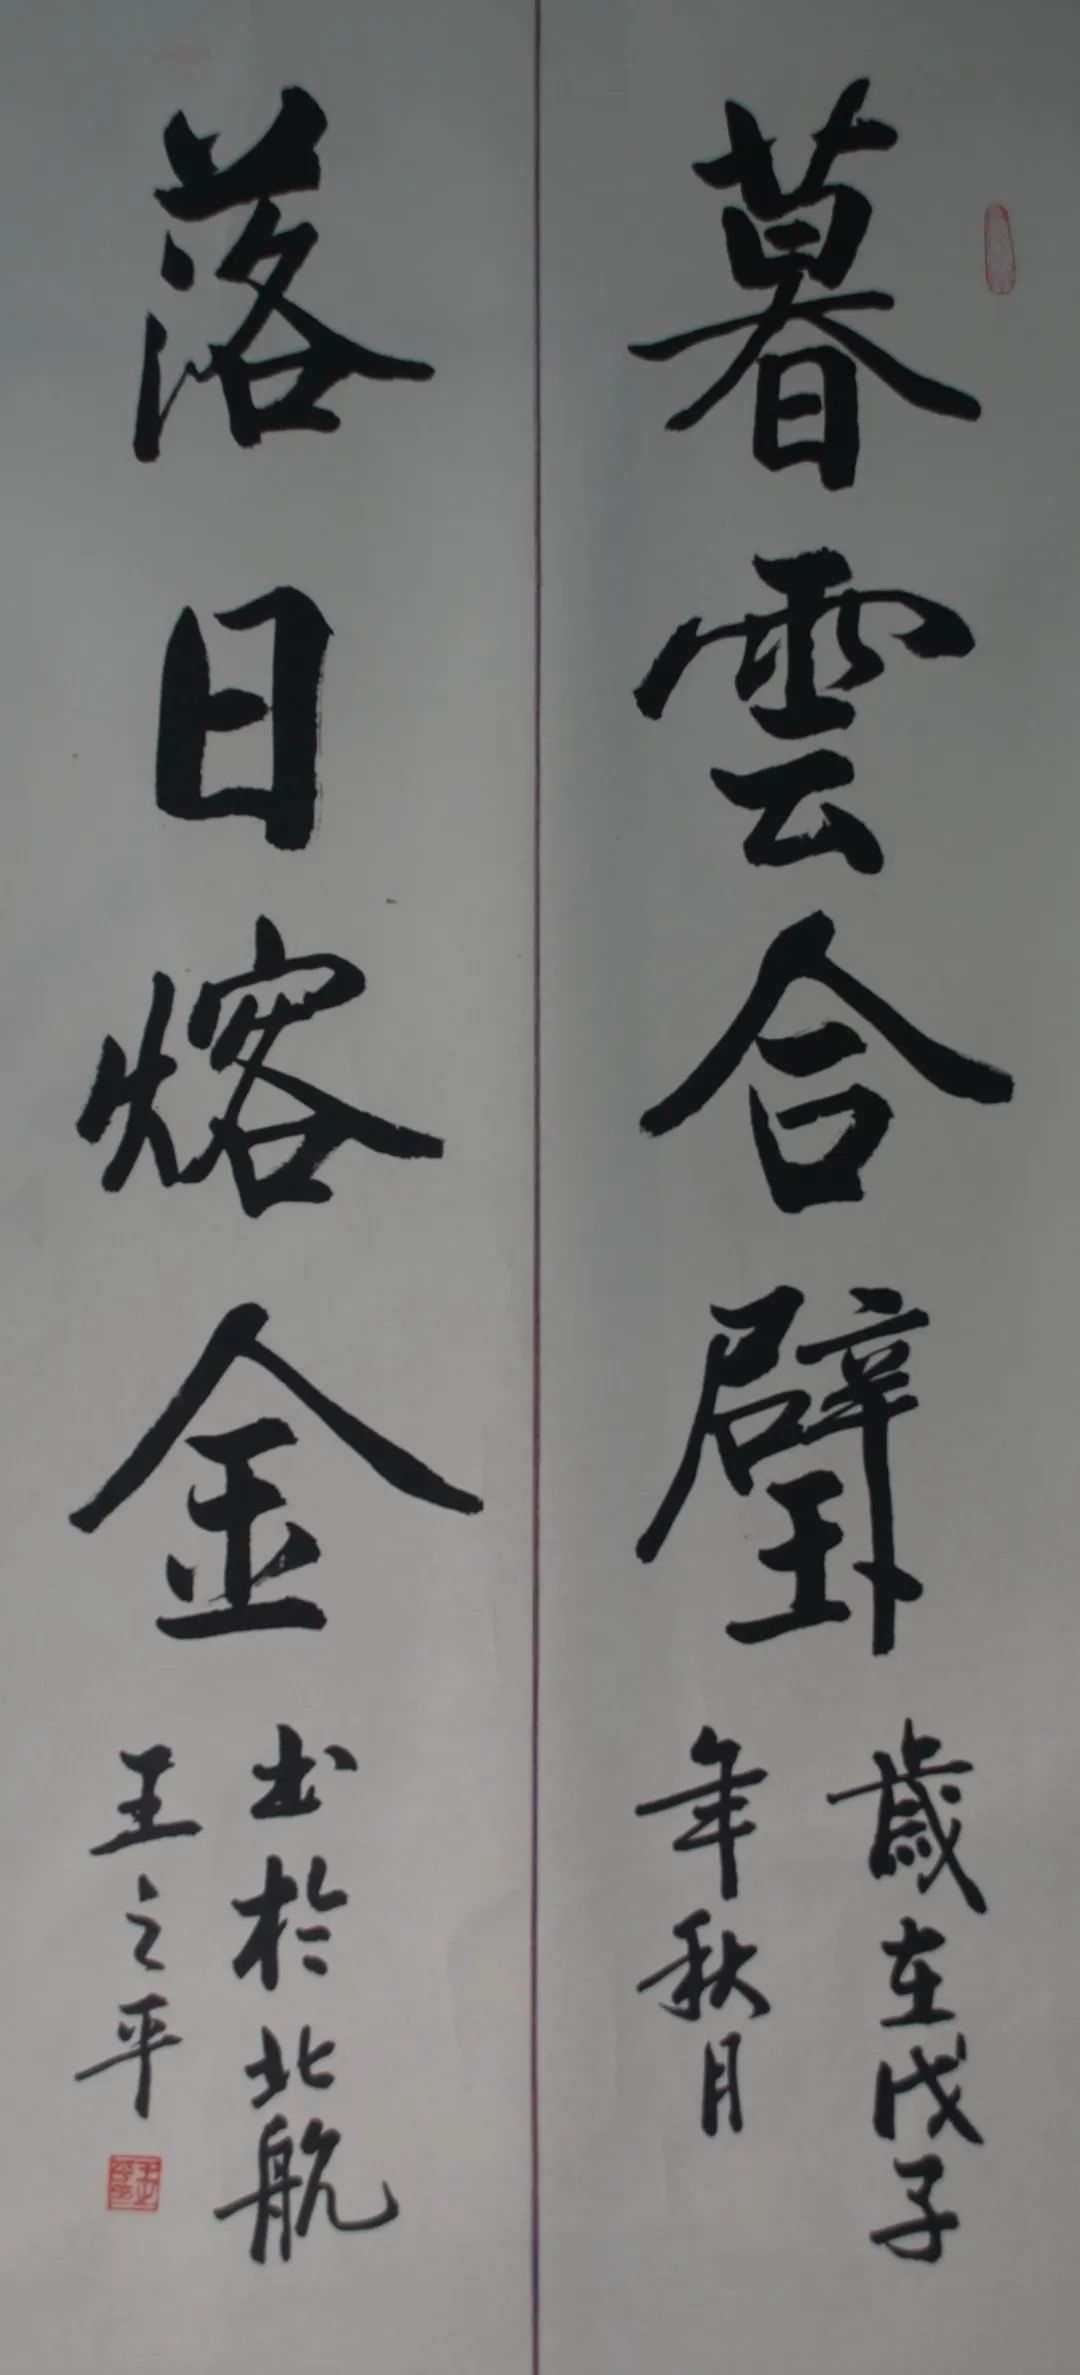 暮雲合璧
歲在戊子
年秋月
落日熔金
书於北航
王之平